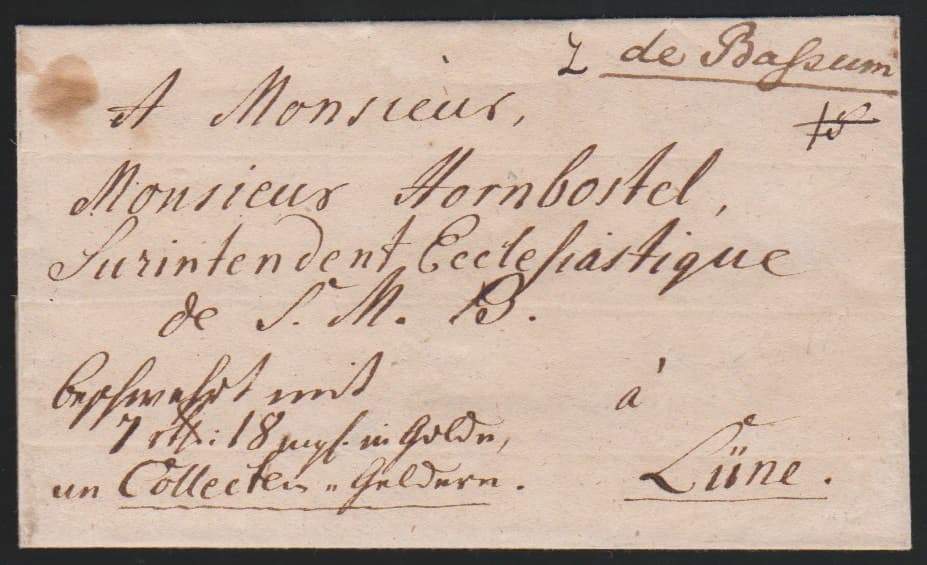 de Bassum
A Monsieur,
Monsieur Hornbostel,
Surintendent Ecclesiastique
de S. M. B.
beschwehrt mit
à
7 rthl: 18 mgf. in Golde,
an Collecten = Geldern.
Lüne.